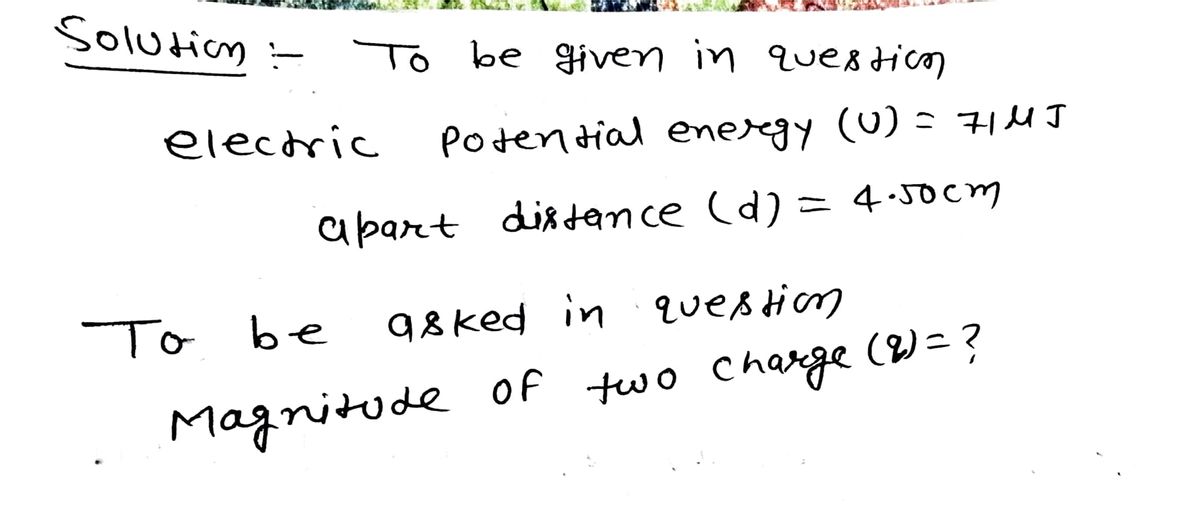 Solution :- To be given in question
electric Potential energy (U) = 71 μJ
apart distance (d) = 4.50cm
To be asked in question
Magnitude of two charge (q) = ?